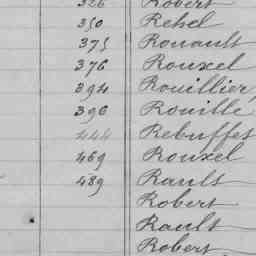 326 Robert
350 Rehel
375 Rouault
376 Rouxel
394 Rouillier
396 Rouille
444 Rebuffet
469 Rouxel
489 Rault
Robert
Rault
Robert